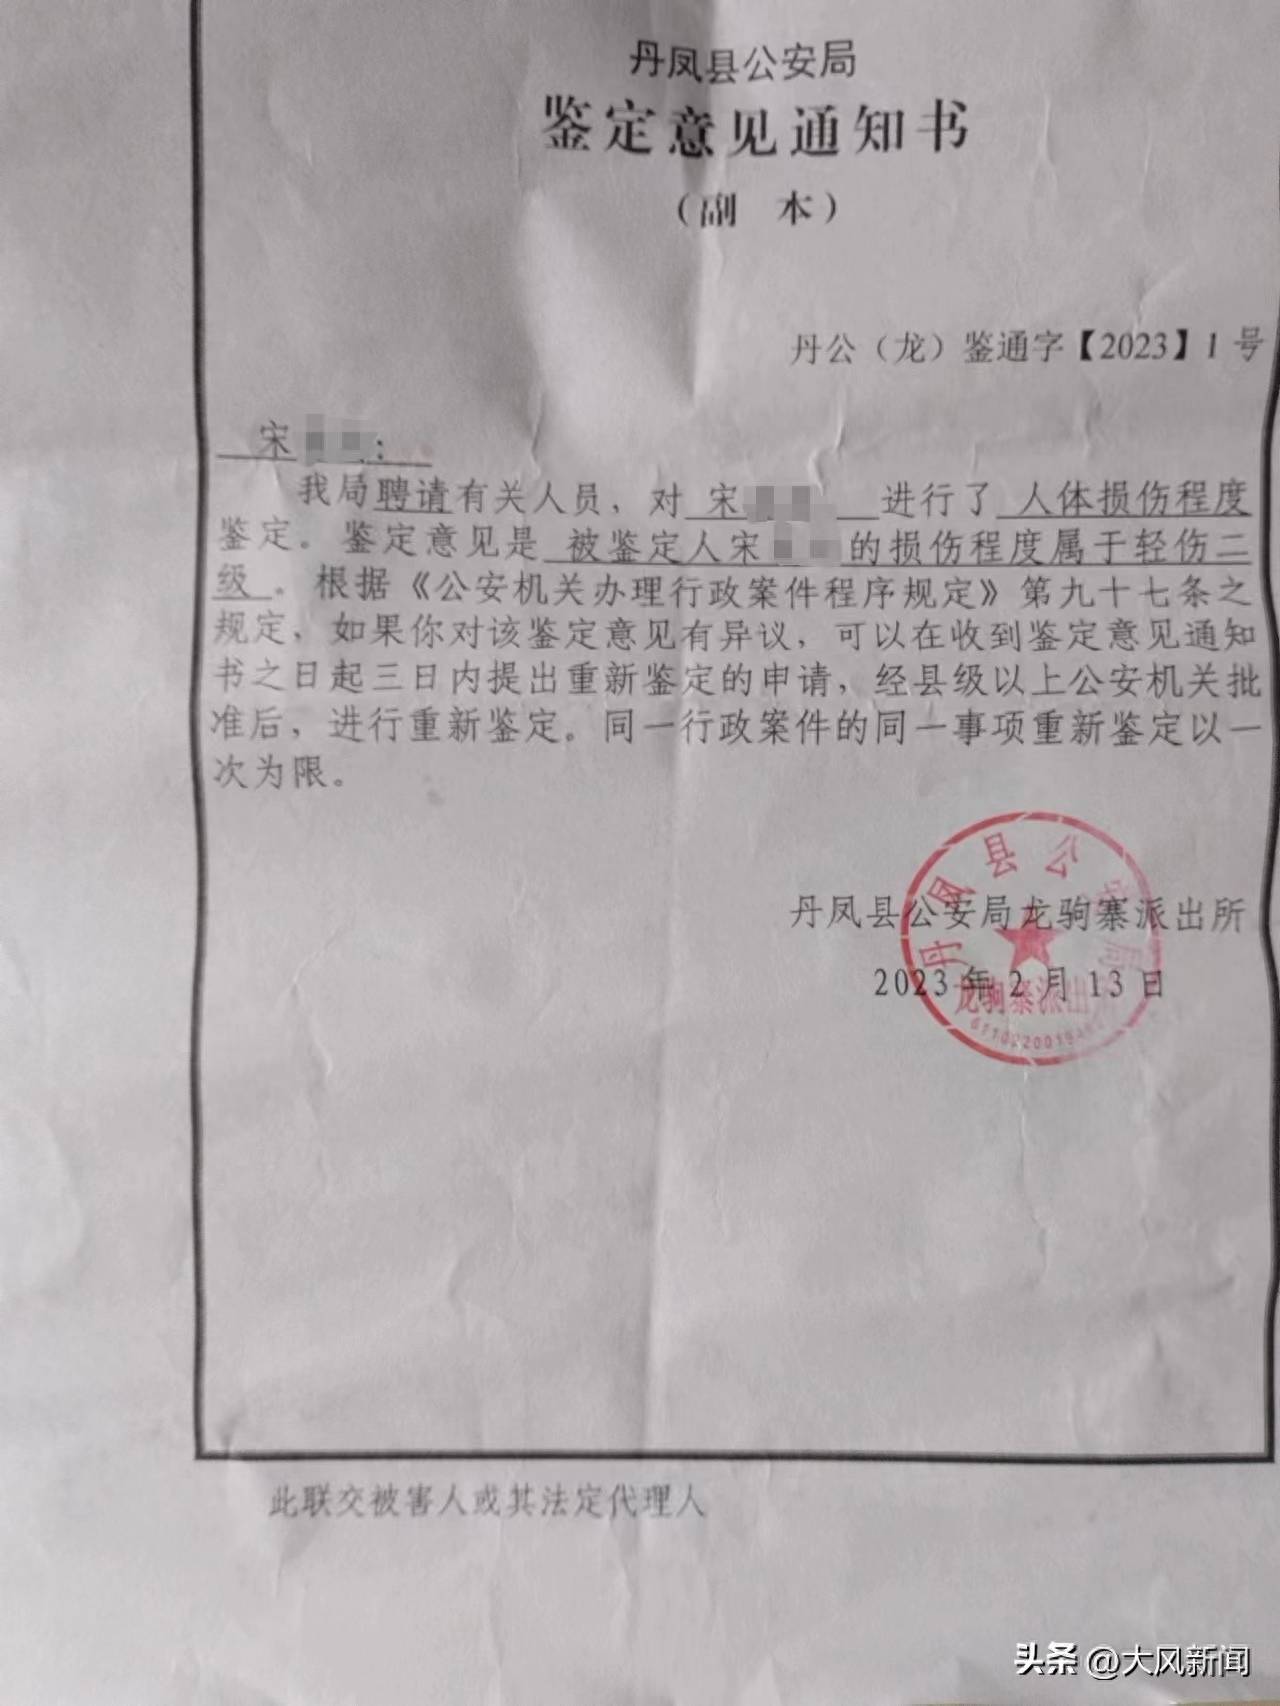 丹凤县公安局
鉴定意见通知书
（副 本）
丹公（龙）鉴通字【2023】1号
宋 ：
我局聘请有关人员，对 宋 进行了 人体损伤程度
鉴定。鉴定意见是 被鉴定人宋 的损伤程度属于轻伤二
级 。根据《公安机关办理行政案件程序规定》第九十七条之
规定，如果你对该鉴定意见有异议，可以在收到鉴定意见通知
书之日起三日内提出重新鉴定的申请，经县级以上公安机关批
准后，进行重新鉴定。同一行政案件的同一事项重新鉴定以一
次为限。
丹凤县公安局
丹凤县公安局龙驹寨派出所
2023 年 2 月 13 日
龙驹寨派出
此联交被害人或其法定代理人
头条 @大风新闻